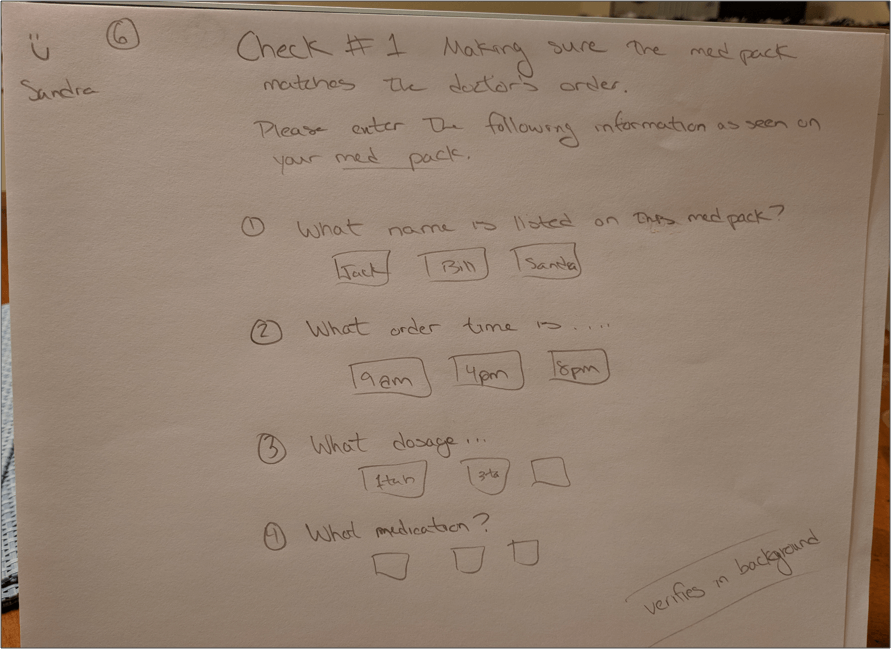 6
Sandra
Check # 1 Making sure the med pack
matches the doctor's order.
Please enter the following information as seen on
your med pack.
1 What name is listed on this med pack?
Jack Bill Sandra
2 What order time is.....
9am 4pm 8pm
3 What dosage...
1 tab
4 What medication?
verifies in background